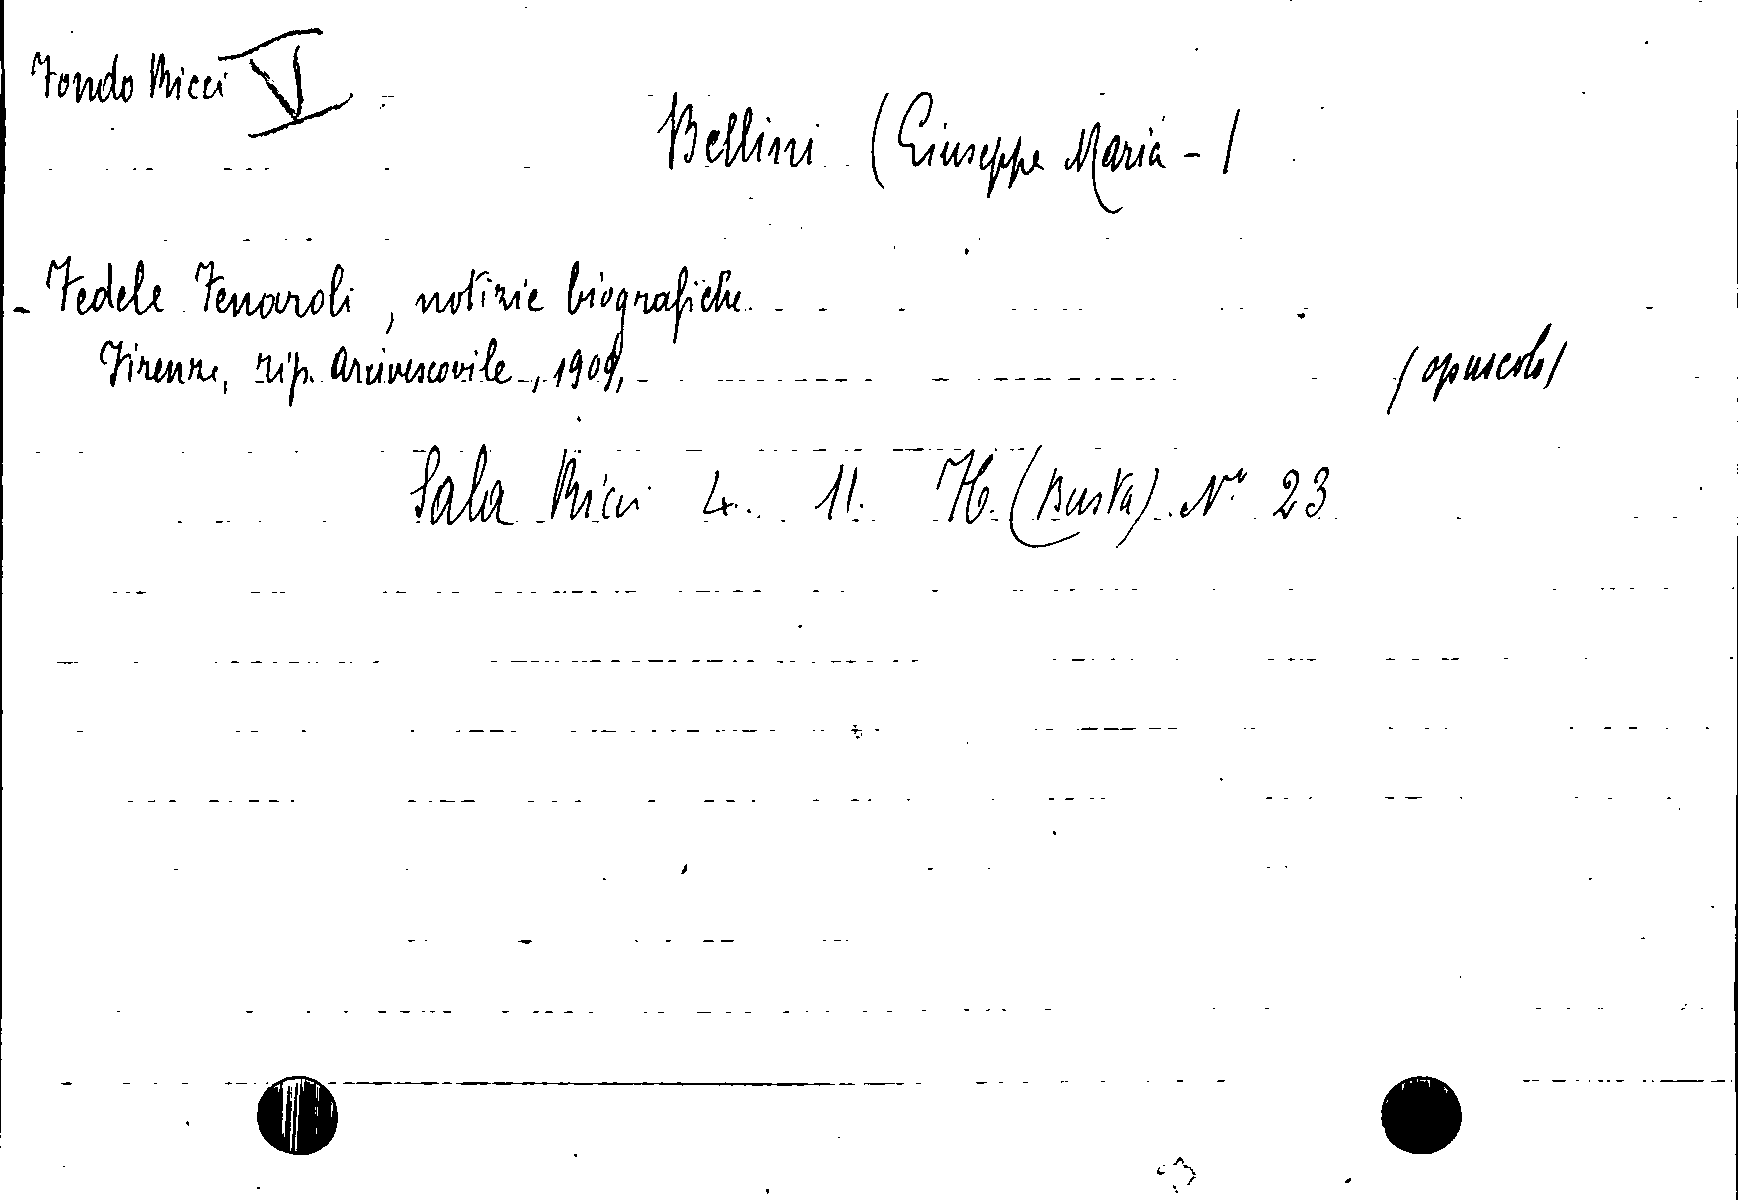 Fondo Ricci V
Bellini (Giuseppe Maria - )
- Fedele Fenaroli, notizie biografiche.
Firenze, tip. Arcivescovile, 1909,
(opuscolo)
Sala Ricci 4. 11. H. (Busta) N° 23